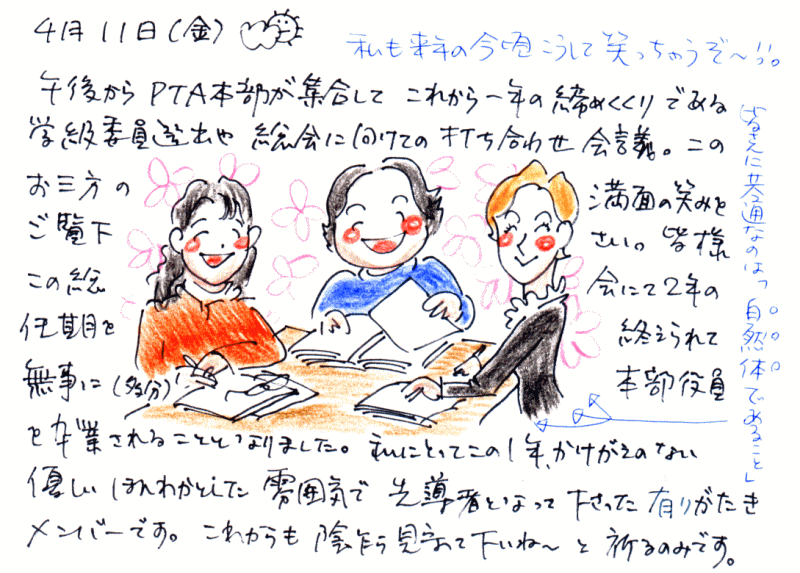 4月11日(金)
私も来年の今頃こうして笑っちゃうぞ〜!!。
午後からPTA本部が集合して これから一年の締めくくりである
学級委員選出や 総会に向けての打ち合わせ会議。この
お三方の 満面の笑みを
ご覧下 さい。皆様
この総 会にて2年の
任期を 終えられて
無事に(多分) 本部役員
を卒業されることとなりました。私にとってこの1年、かけがえのない
優しい ほんわかとした 雰囲気で 先導者となって下さった 有りがたき
メンバーです。これからも 陰乍ら見守って下いね〜 と 祈るのみです。
皆さんに共通なのはっ「自然体であること」